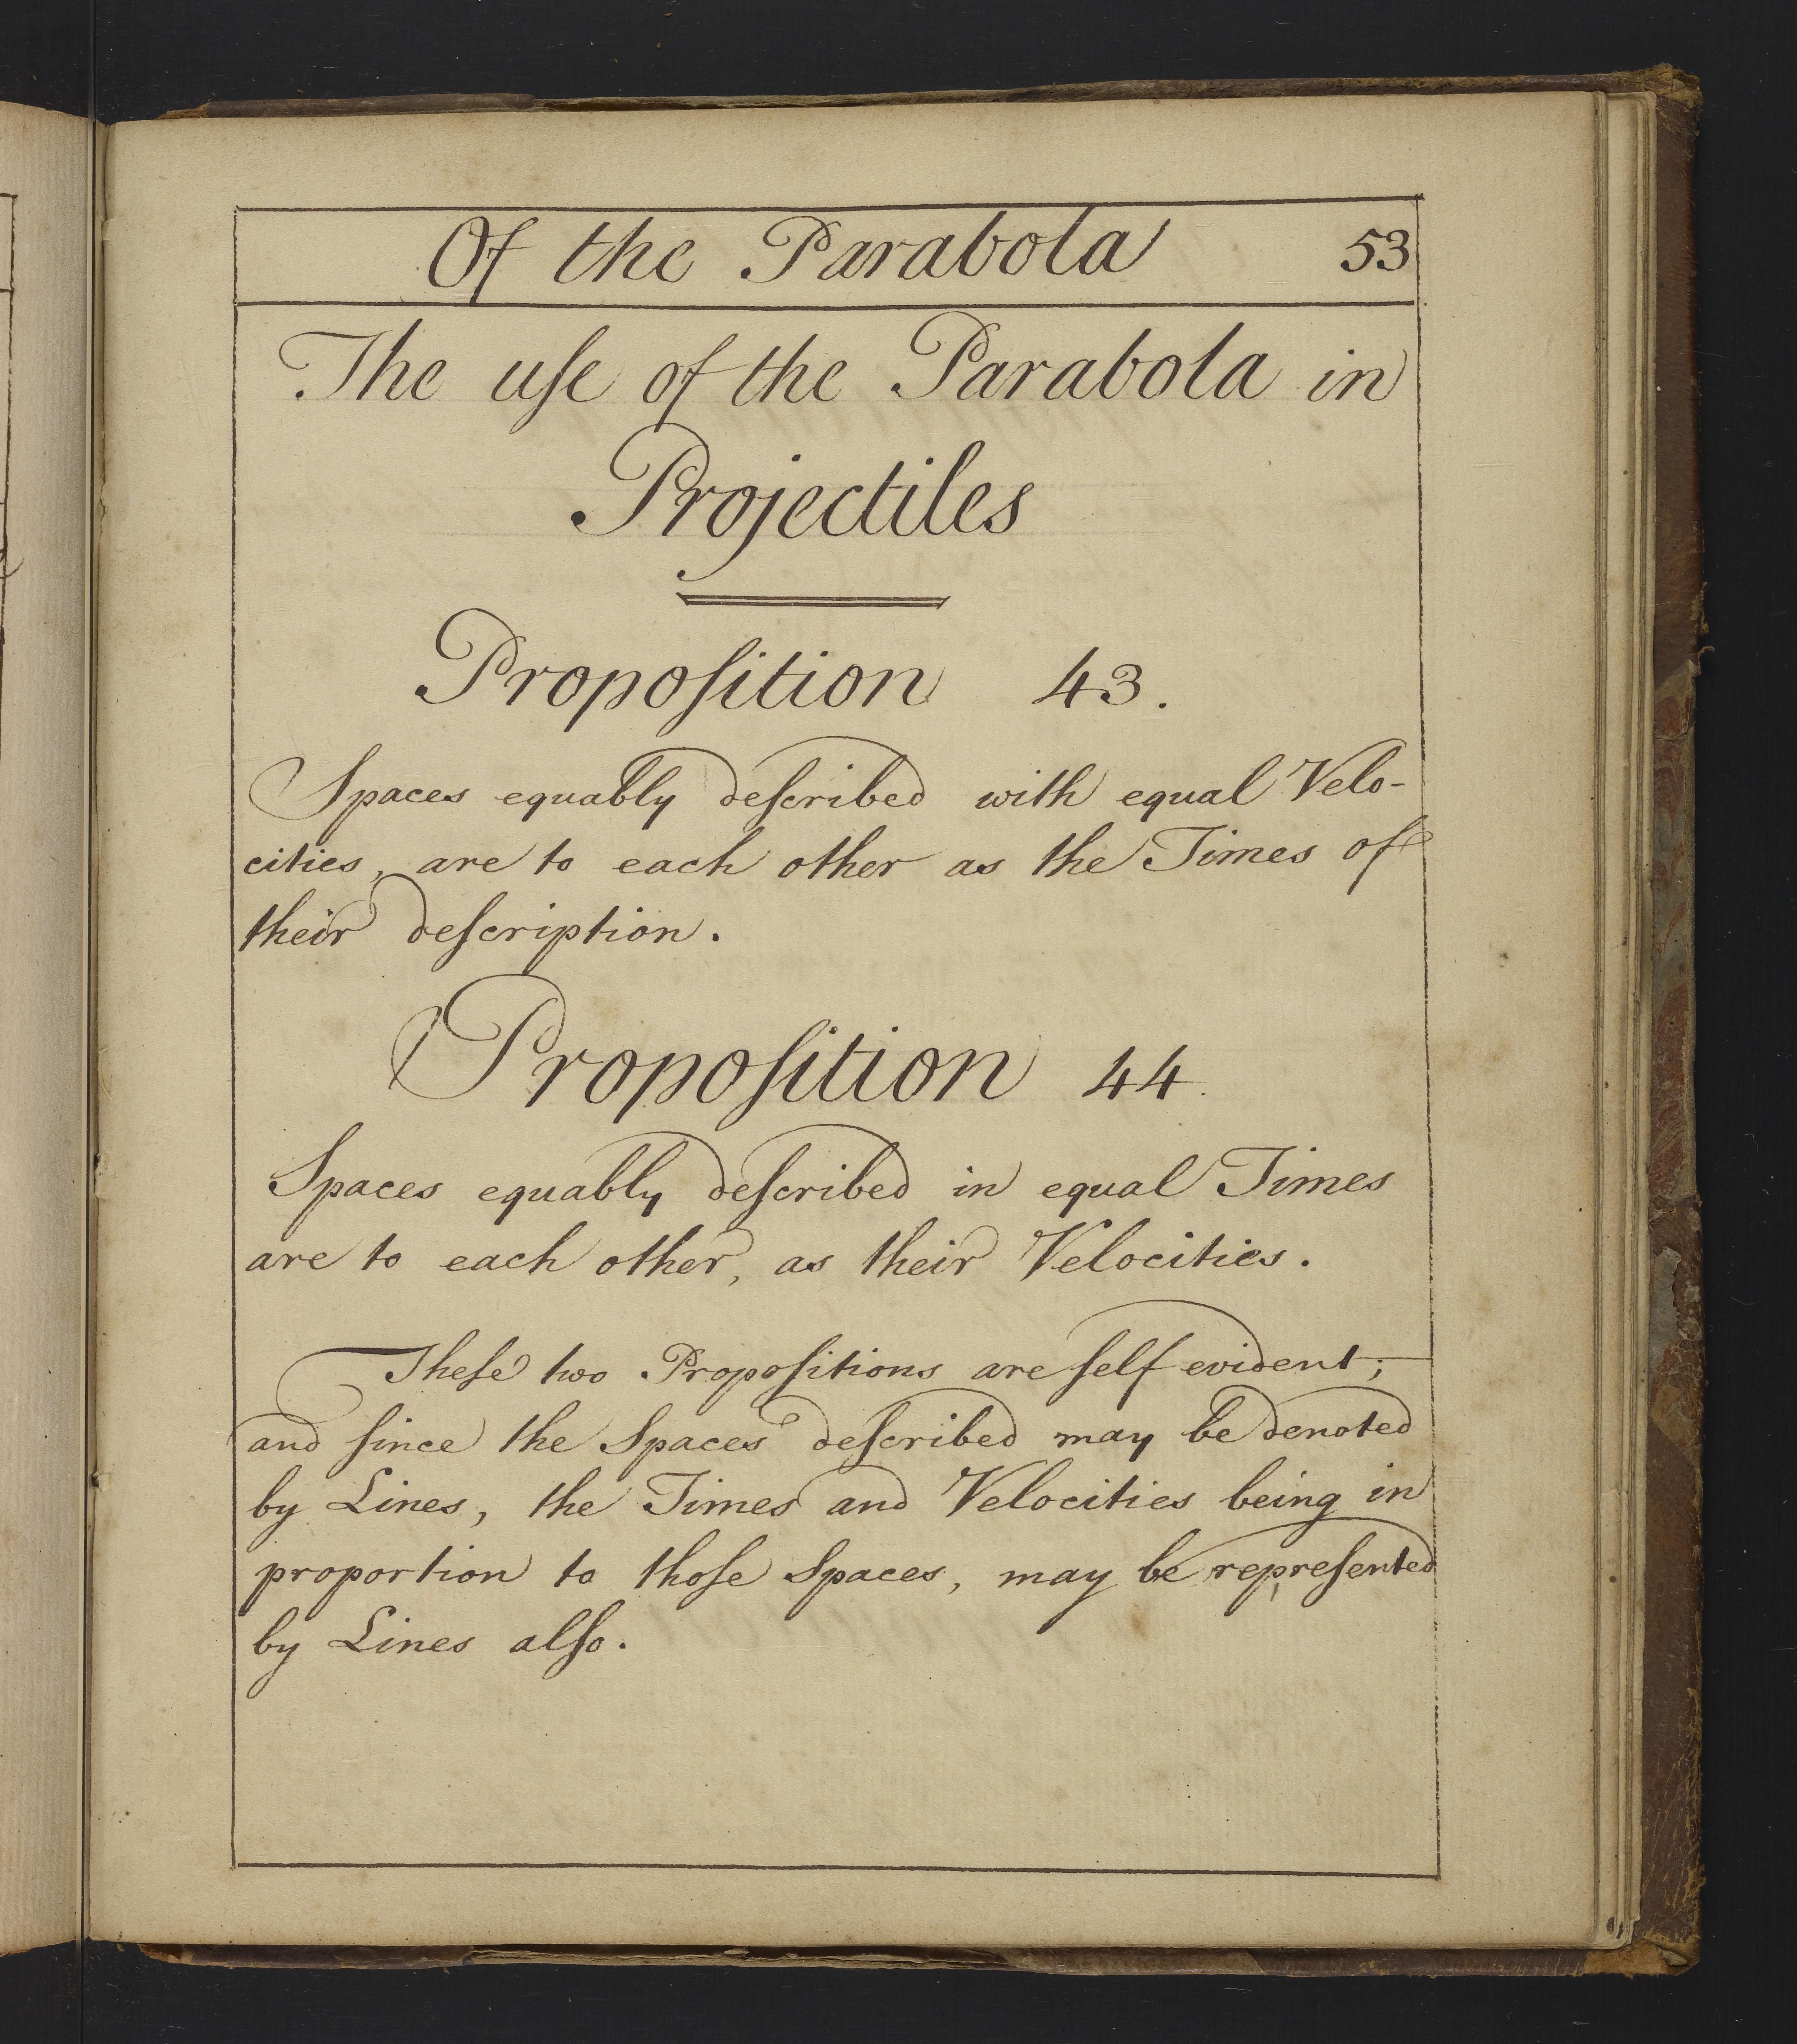 Of the Parabola 53
The uſe of the Parabola in
Projectiles
Propoſition 43.
Spaces equably deſcribed with equal Velo-
cities, are to each other as the Times of
their deſcription.
Propoſition 44.
Spaces equably deſcribed in equal Times
are to each other, as their Velocities.
Theſe two Propoſitions are ſelf evident;
and ſince the Spaces deſcribed may be denoted
by Lines, the Times and Velocities being in
proportion to thoſe Spaces, may be repreſented
by Lines alſo.